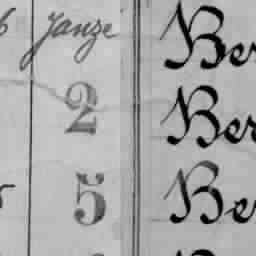 6 Ganze Ber
2 Ber
5 Ber